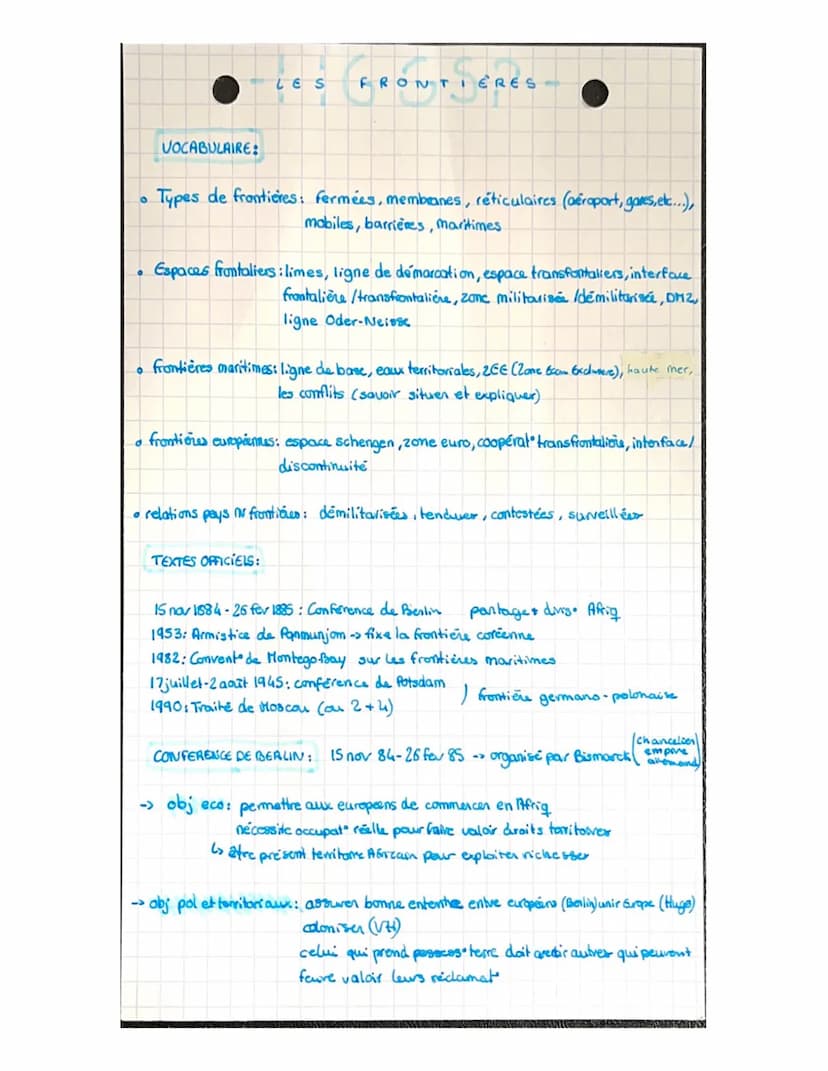 HGGSP
- LES FRONTIÈRES -
VOCABULAIRE:
• Types de frontières: fermées, membranes, réticulaires (aéroport, gares, etc...),
mobiles, barrières, maritimes
• Espaces frontaliers: limes, ligne de démarcation, espace transfontaliers, interface
frontalière/transfrontalière, zone militarisée/démilitarisée, DMZ,
ligne Oder-Neisse
• frontières maritimes: ligne de base, eaux territoriales, ZEE (Zone Econ Exclusive), haute mer,
les conflits (savoir situer et expliquer)
• frontières européennes: espace schengen, zone euro, coopérat° transfrontalière, interface/
discontinuité
• relations pays frontières: démilitarisées, tendues, contestées, surveillées
TEXTES OFFICIELS:
15 nov 1884 - 26 fev 1885: Conférence de Berlin partage + divis° Afriq
1953: Armistice de Panmunjom -> fixe la frontière coréenne
1982: Convent° de Montego Bay sur les frontières maritimes
17 juillet - 2 août 1945: conférence de Potsdam
) frontière germano-polonaise
1990: Traité de Moscou (ou 2+4)
CONFERENCE DE BERLIN: 15 nov 84 - 26 fev 85 -> organisé par Bismarck (chancelier
empire
allemand)
-> obj eco: permettre aux europeens de commercer en Afriq
nécessite occupat° réelle pour faire valoir droits territoires
↳ être présent territoire Africain pour exploiter richesses
-> obj pol et territoriaux: assurer bonne entente entre européens (Berlin) unir Europe (Hugo)
coloniser (VH)
celui qui prend possess° terre doit avertir autres qui peuvent
faire valoir leurs réclamat°